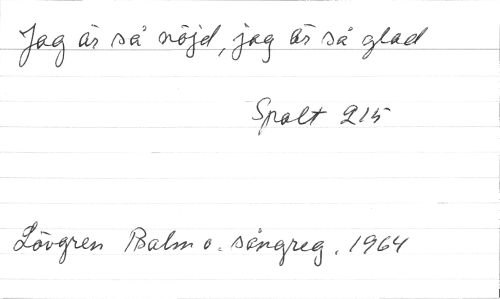 Jag är så nöjd, jag är så glad
Spalt 215
Lövgren Psalm o. sångreg. 1964